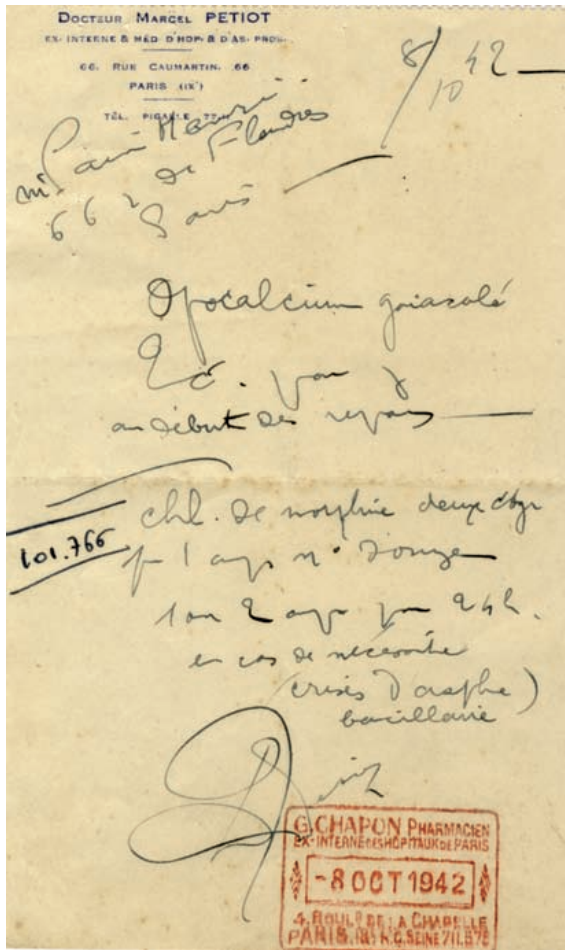 DOCTEUR MARCEL PETIOT
EX-INTERNE & MÉD. D'HOP. & D'AS. PROV.
66. RUE CAUMARTIN. 66
PARIS (IXᵉ)
TÉL. PIGALLE
8/10 42
66 r de Flandres
Paris
Opocalcium gaiacolé
2 c. par j
au début des repas
chl. de morphine deux ctgr
101.766
pr 1 amp nº douze
1 ou 2 amp par 24h.
en cas de nécessité
(crises d'asphe)
bacillaire
G. CHAPON PHARMACIEN
EX-INTERNE DES HOPITAUX DE PARIS
-8 OCT 1942
4, BOULD DE LA CHAPELLE
PARIS. R.C. SEINE